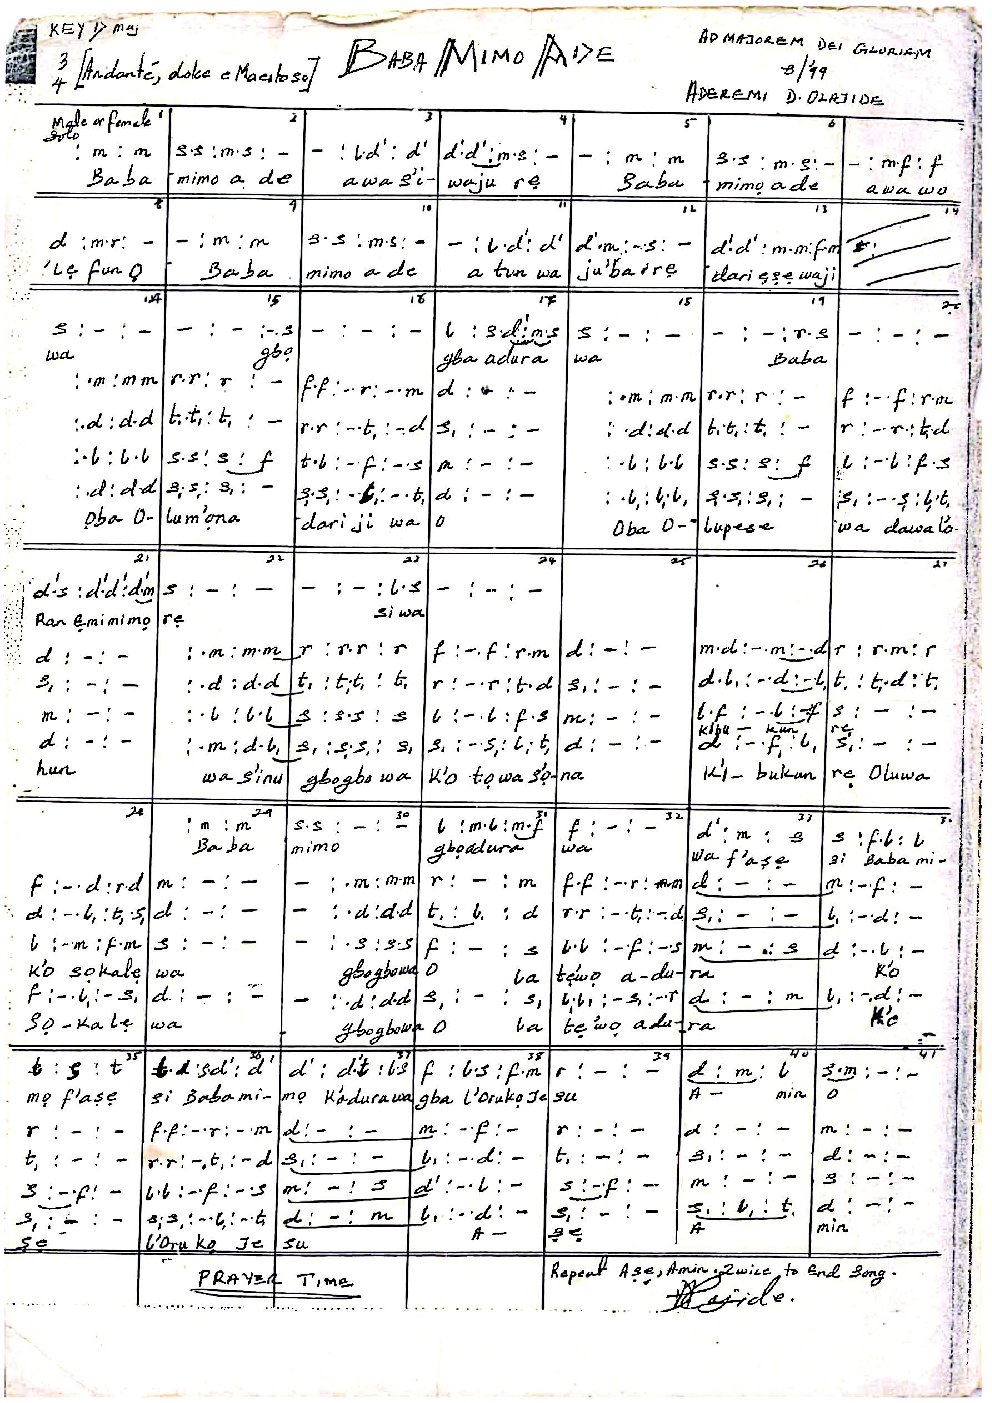 KEY D maj
3/4 [Andante, dolce e Maestoso]
BABA MIMO A DE
AD MAJOREM DEI GLORIAM
8/'99
ADEREMI D. OLAJIDE
Male or female Solo 1 2 3 4 5 6
: m : m | s.s : m.s : - | - : l.d' : d' | d'.d' : m.s : - | - : m : m | s.s : m.s : - | - : m.f : f
Baba mimo a de awa s'i- waju rẹ Baba mimọ a de awa wo
8 9 10 11 12 13 14
d : m.r : - | - : m : m | s.s : m.s : - | - : l.d' : d' | d'.m : -.s : - | d'.d' : m.m : f.m | s :
'lẹ fun Ọ Baba mimo a de a tun wa ju'ba rẹ dari ẹsẹ waji
14 15 16 17 18 19 20
s : - : - | - : - : -.s | - : - : - | l : s.d' : m.s | s : - : - | - : - : r.s | - : - : -
wa gbọ gba adura wa Baba
: .m : m.m | r.r : r : - | f.f : -.r : -.m | d : - : - | : .m : m.m | r.r : r : - | f : -.f : r.m
: .d : d.d | t,.t, : t, : - | r.r : -.t, : -.d | s, : - : - | : .d : d.d | t,.t, : t, : - | r : -.r : t,.d
: .l : l.l | s.s : s : f | l.l : -.f : -.s | m : - : - | : .l : l.l | s.s : s : f | l : -.l : f.s
: .d : d.d | s,.s, : s, : - | s,.s, : -.l, : -.t, | d : - : - | : .l, : l,.l, | s,.s, : s, : - | s, : -.s, : l,.t,
Ọba O- lum'ọna dari ji wa O Oba O- lupese wa dawa lo-
21 22 23 24 25 26 27
d'.s : d'.d' : d'.m | s : - : - | - : - : l.s | - : - : -
Ran ẹmi mimọ rẹ si wa
d : - : - | : .m : m.m | r : r.r : r | f : -.f : r.m | d : - : - | m.d : -.m : -.d | r : r.m : r
s, : - : - | : .d : d.d | t, : t,.t, : t, | r : -.r : t,.d | s, : - : - | d.l, : -.d : -.l, | t, : t,.d : t,
m : - : - | : .l : l.l | s : s.s : s | l : -.l : f.s | m : - : - | l.f : -.l : -.f | s : - : -
kibu - kun rẹ
d : - : - | : .m : d.l, | s, : s,.s, : s, | s, : -.s, : l,.t, | d : - : - | d : -.f, : l, | s, : - : -
hun wa s'inu gbogbo wa K'o tọ wa s'ọ-na K'i- bukun rẹ Oluwa
28 29 30 31 32 33 34
: m : m | s.s : - : - | l : m.l : m.f | f : - : - | d' : m : s | s : f.l : l
Baba mimo gbọ adura wa wa f'asẹ si Baba mi-
f : -.d : r.d | m : - : - | - : .m : m.m | r : - : m | f.f : -.r : m.m | d : - : - | m : -.f : -
d : -.l, : t,.s, | d : - : - | - : .d : d.d | t, : l, : d | r.r : -.t, : -.d | s, : - : - | l, : -.d : -
l : -.m : f.m | s : - : - | - : .s : s.s | f : - : s | l.l : -.f : -.s | m : - : s | d : -.l : -
K'o sọkalẹ wa gbogbo wa O la tẹ'wọ a-du-ra K'o
f : -.l, : -.s, | d : - : - | - : .d : d.d | s, : - : s, | l,.l, : -.s, : -.r | d : - : m | l, : -.d : -
Sọ-kalẹ wa gbogbo wa O la tẹ'wọ adu-ra K'o
35 36 37 38 39 40 41
t : s : t | t.d' : s.d' : d' | d' : d'.t : l.s | f : l.s : f.m | r : - : - | d : m : l | s.m : - : -
mọ f'asẹ si Baba mi- mọ K'adura wa gba l'Orukọ Je su A - min O
r : - : - | f.f : -.r : -.m | d : - : - | m : -.f : - | r : - : - | d : - : - | m : - : -
t, : - : - | r.r : -.t, : -.d | s, : - : - | l, : -.d : - | t, : - : - | s, : - : - | d : - : -
s : -.f : - | l.l : -.f : -.s | m : - : s | d' : -.l : - | s : -.f : - | m : - : - | s : - : -
s, : - : - | s,.s, : -.l, : -.t, | d : - : m | l, : -.d : - | s, : - : - | s, : l, : t, | d : - : -
sẹ l'Orukọ Je su A - sẹ A min
PRAYER TIME
Repeat Asẹ, Amin. Twice to End Song.